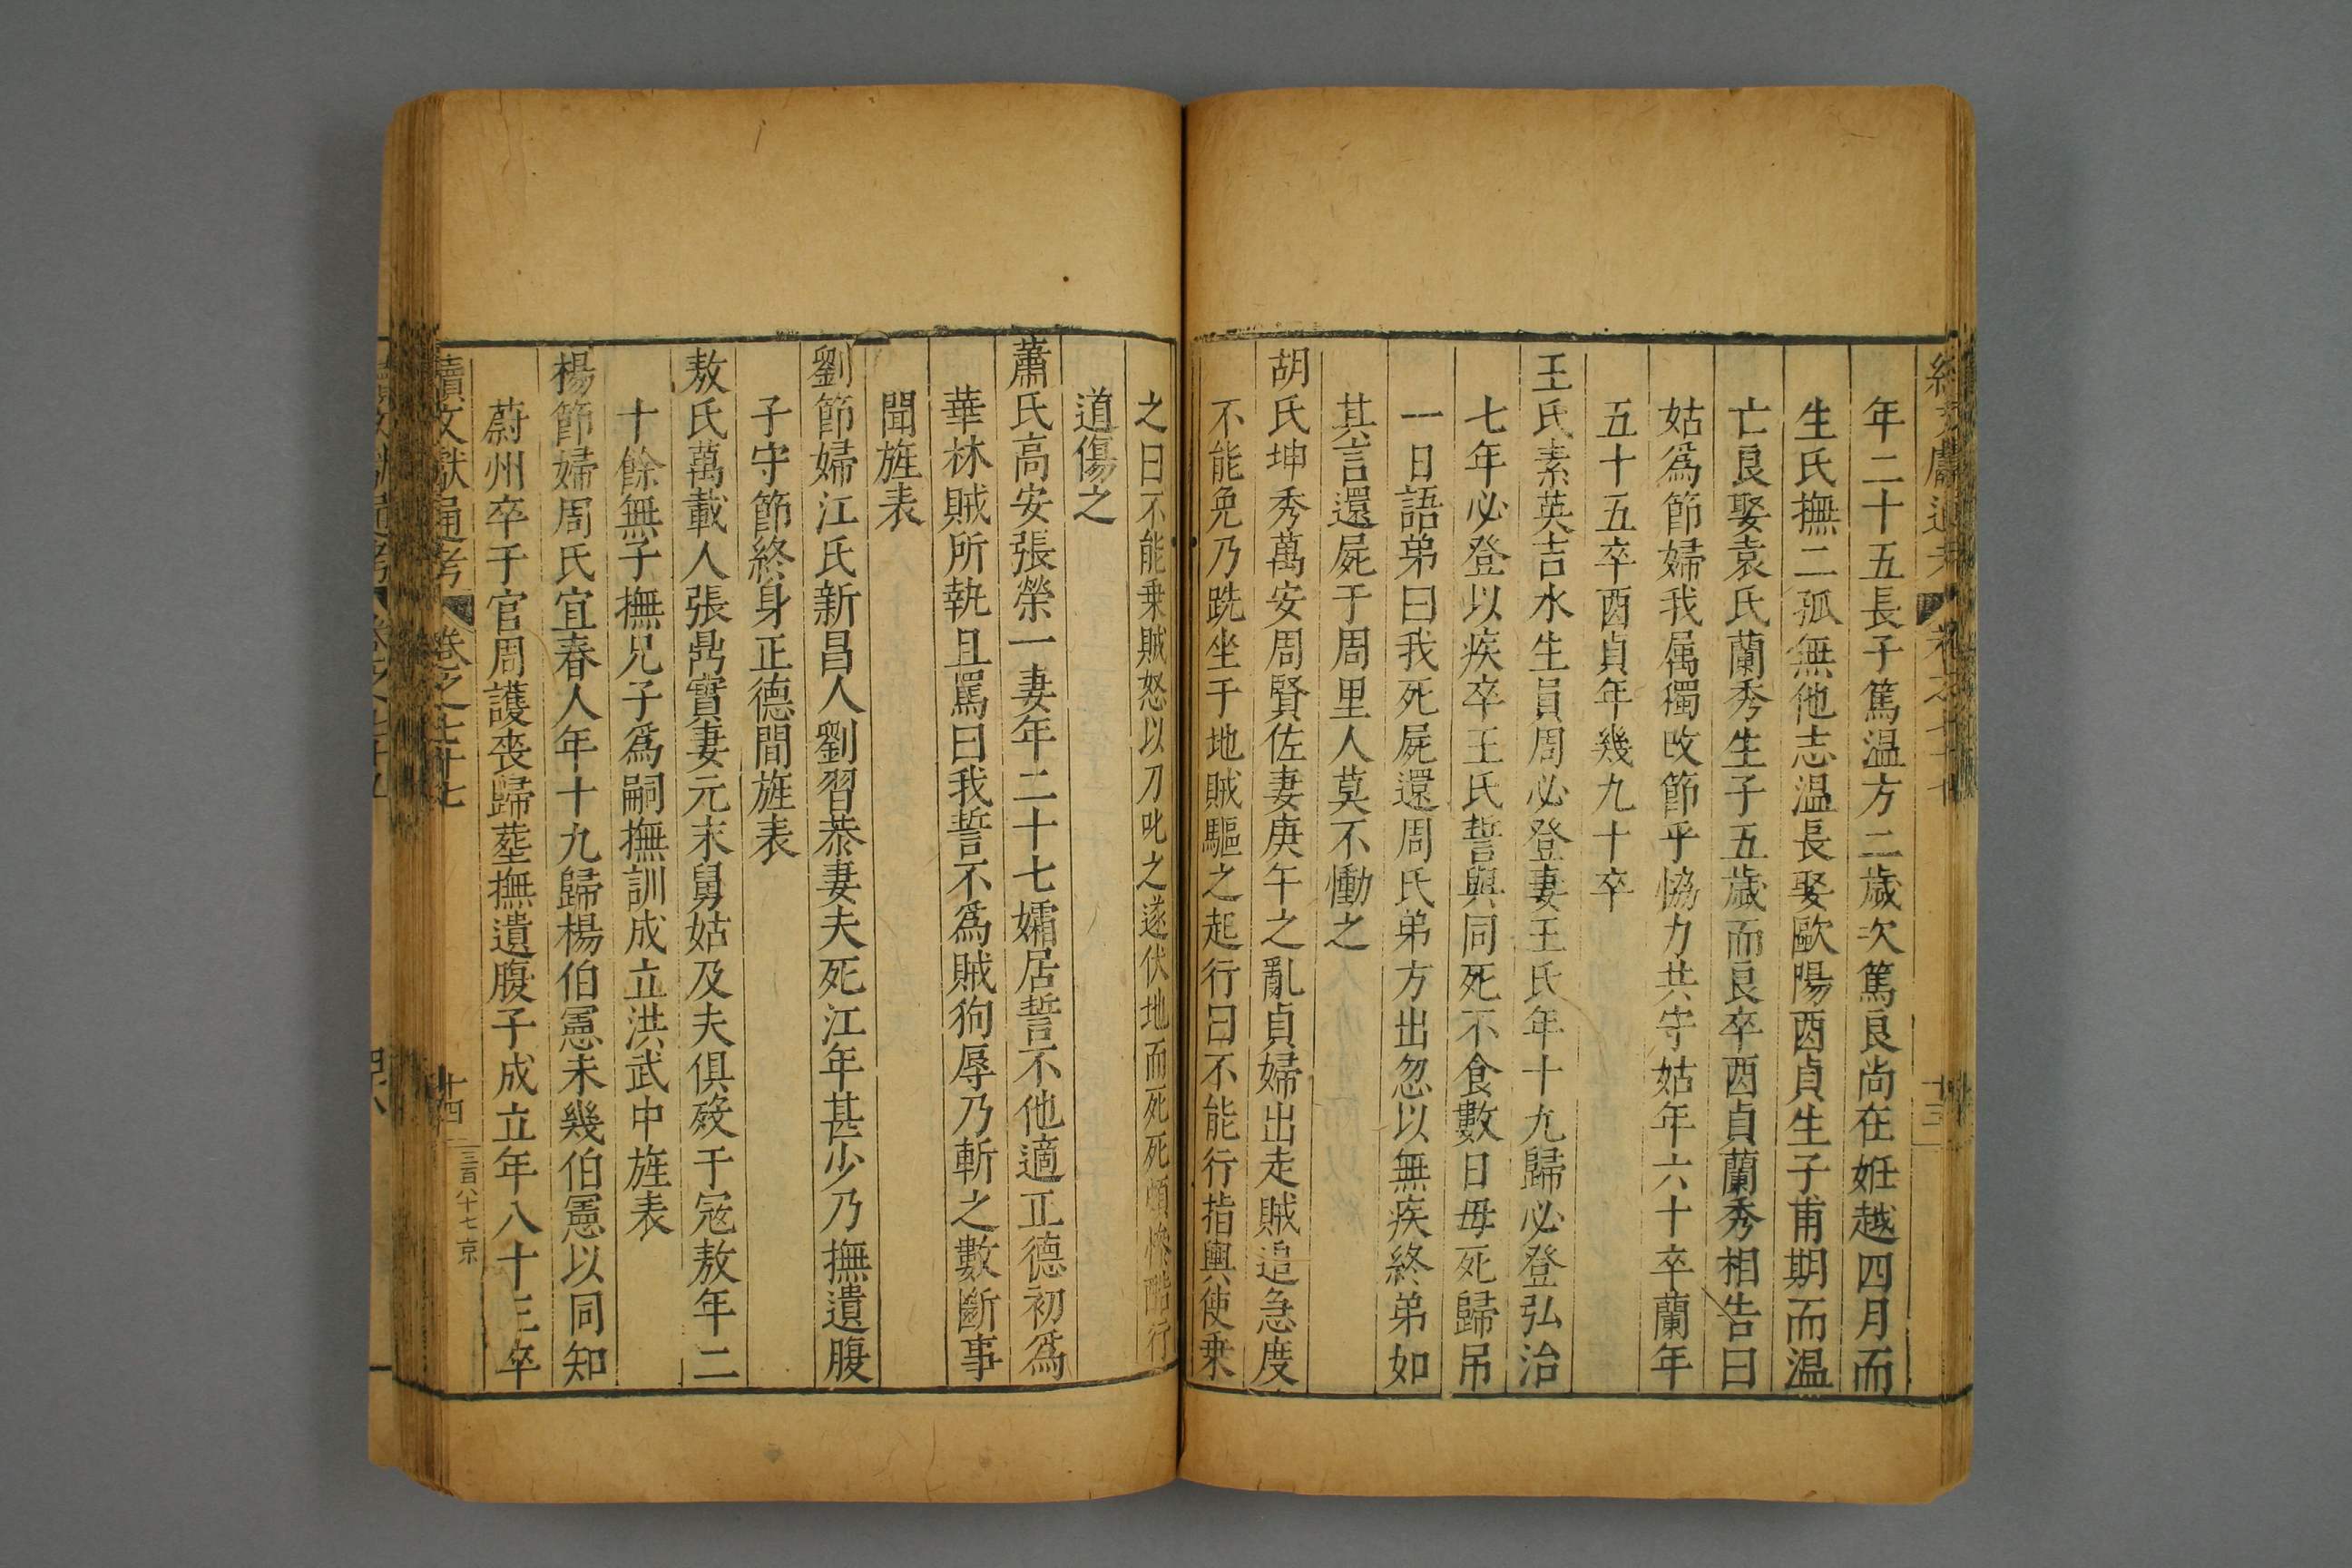 續文獻通考 卷之七十七 十三
年二十五長子篤温方二歲次篤良尚在姙越四月而
生氏撫二孤無他志温長娶歐陽酉貞生子甫期而温
亡良娶袁氏蘭秀生子五歲而良卒酉貞蘭秀相告曰
姑爲節婦我属獨改節乎恊力共守姑年六十卒蘭年
五十五卒酉貞年幾九十卒
王氏素英吉水生員周必登妻王氏年十九歸必登弘治
七年必登以疾卒王氏誓與同死不食數日母死歸吊
一日語弟曰我死屍還周氏弟方出忽以無疾終弟如
其言還屍于周里人莫不慟之
胡氏坤秀萬安周賢佐妻庚午之亂貞婦出走賊追急度
不能免乃跣坐于地賊驅之起行曰不能行指輿使乗
之曰不能乗賊怒以刀叱之遂伏地而死死頗慘酷行
道傷之
蕭氏高安張榮一妻年二十七孀居誓不他適正德初爲
華林賊所執且罵曰我誓不爲賊狗辱乃斬之數斷事
聞旌表
劉節婦江氏新昌人劉習恭妻夫死江年甚少乃撫遺腹
子守節終身正德間旌表
敖氏萬載人張鼎實妻元末舅姑及夫俱殁于宼敖年二
十餘無子撫兄子爲嗣撫訓成立洪武中旌表
楊節婦周氏宜春人年十九歸楊伯憲未幾伯憲以同知
蔚州卒于官周護喪歸塟撫遺腹子成立年八十三卒
續文獻通考 卷之七十七 十四 三百八十七 京